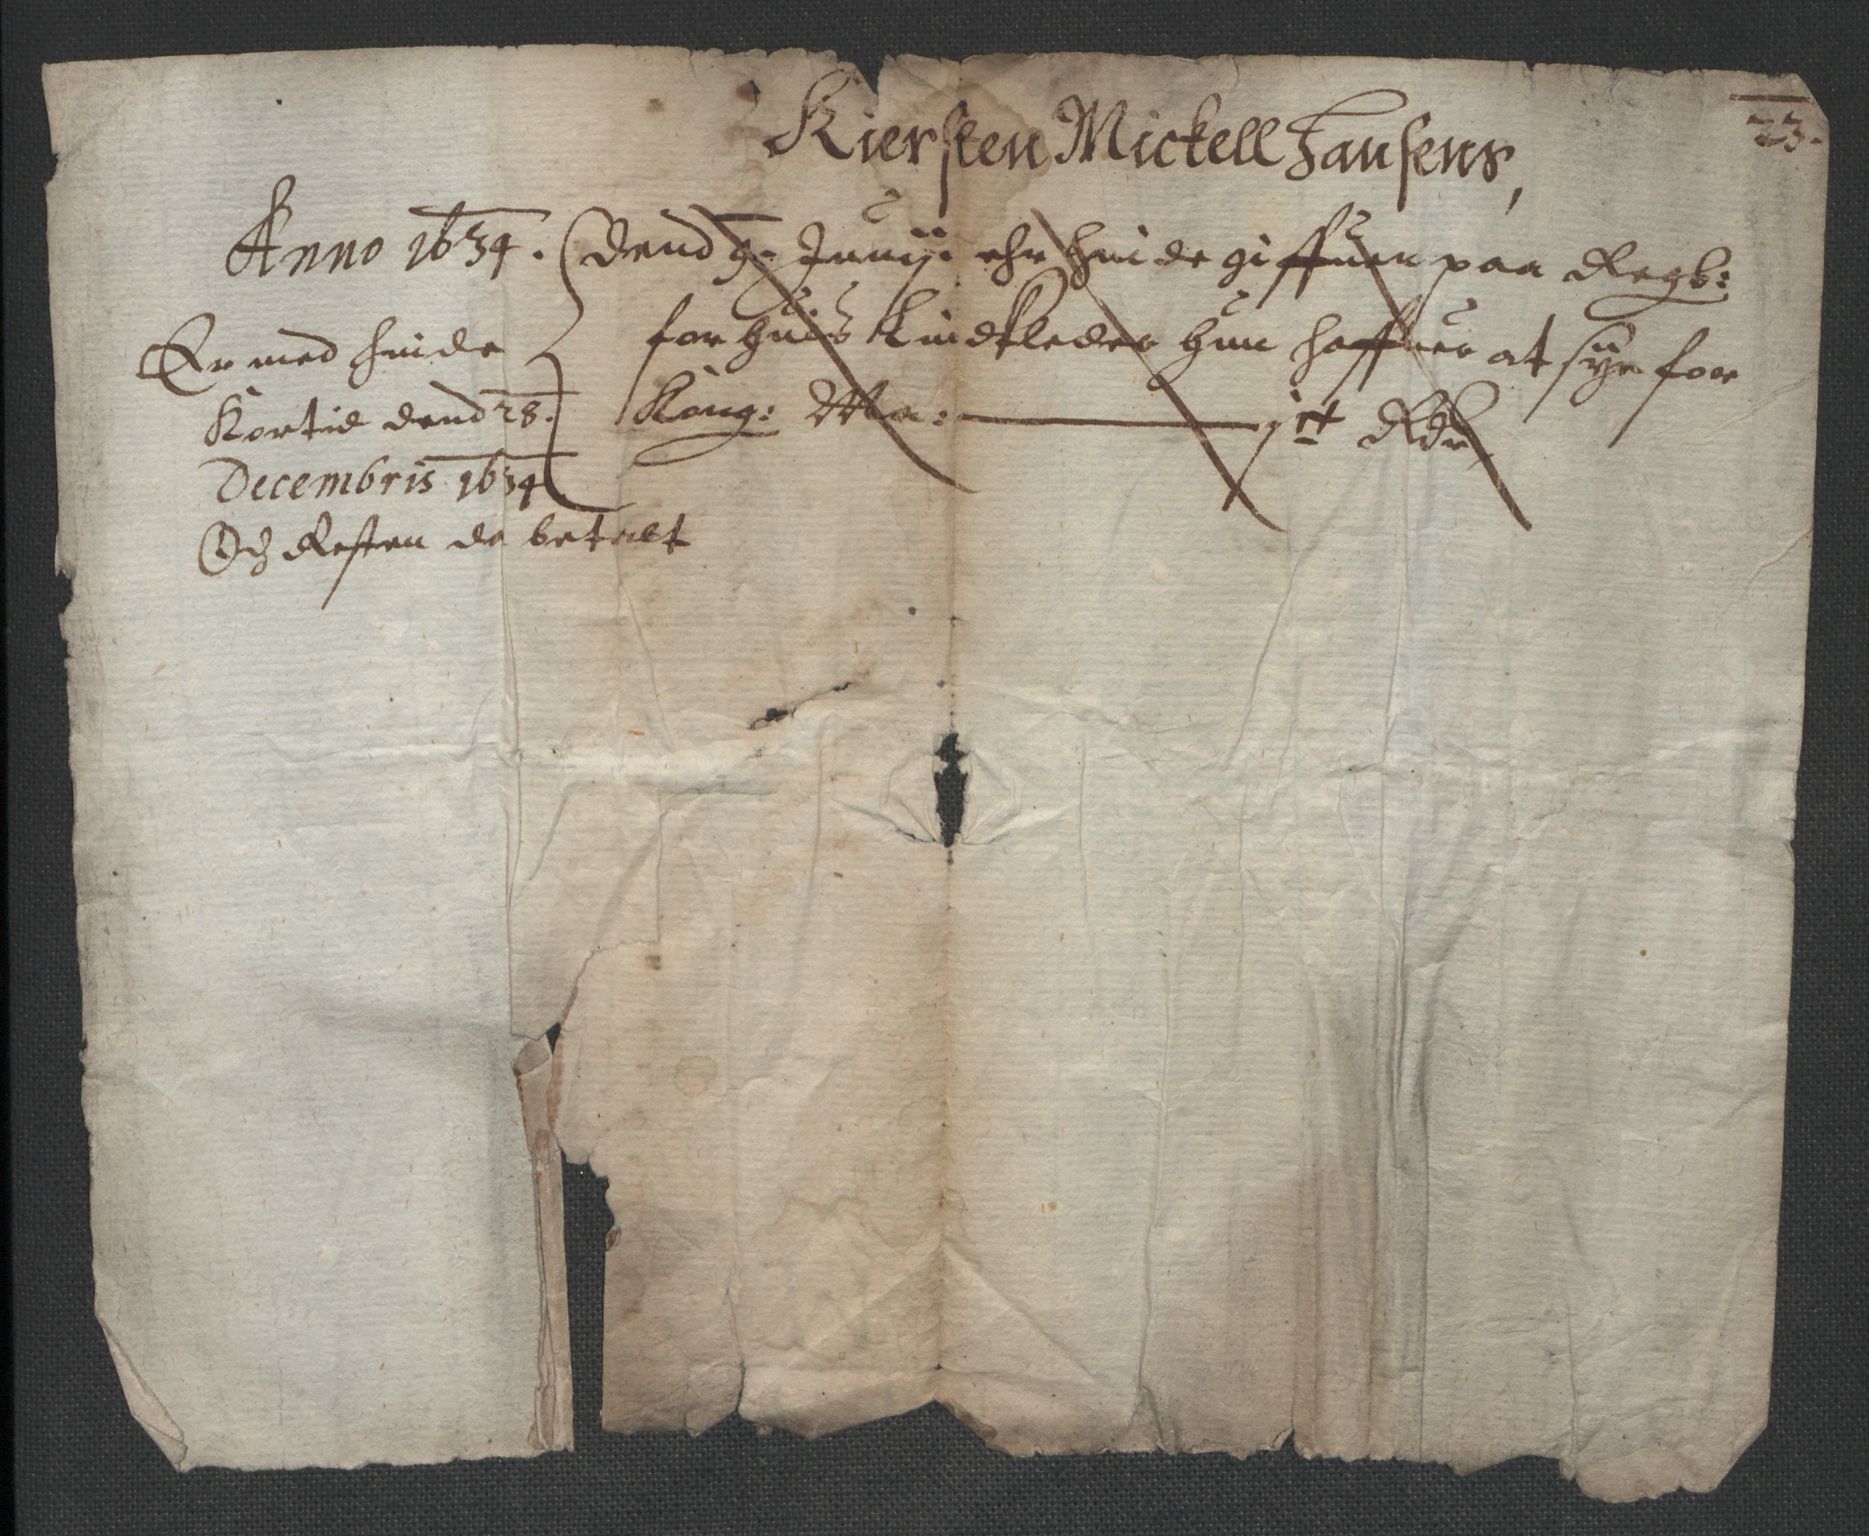 23.
Kiersten Mickell Hansens,
Anno 1634. Dend 9. Junij. ehr hinde giffuen paa Regb:
for huis Lindkleder hun haffuer at sye for
Kong: Ma: jtt Rdr
Er med hinde
Kortid dend 28.
Decembris 1634
Och Resten da betalt